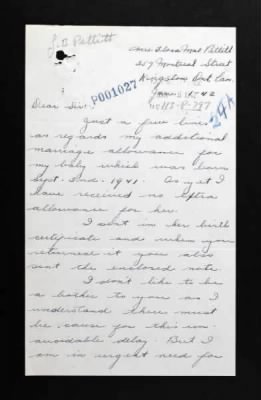 J.B. Pettitt
Mrs. Mae Pettitt
257 Montreal Street
Kingston Ont Can.
42
P001027
24A
Dear Sir:
Just a few lines
as regards my additional
marriage allowance for
my baby which was born
Sept. 2nd. 1941. As yet I
have received no extra
allowance for her.
I sent in her birth
certificate and when you
returned it you also
sent the enclosed note.
I don't like to be
a bother to you as I
understand there must
be cause for this un-
avoidable delay. But I
am in urgent need for